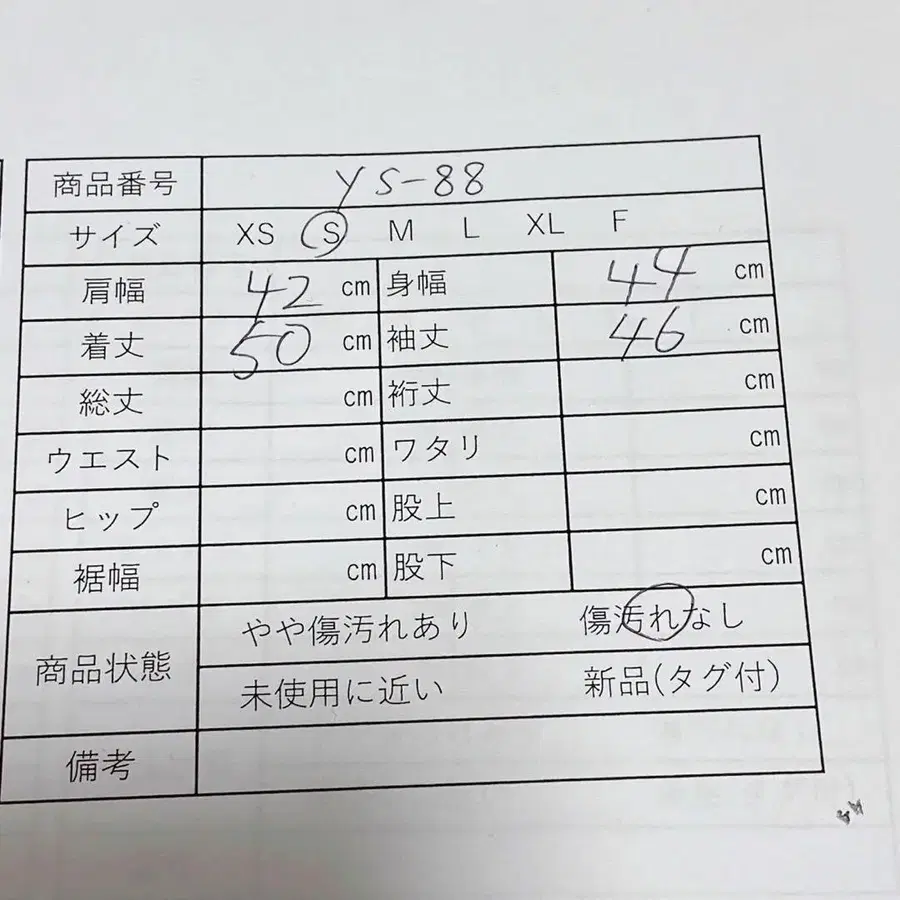 商品番号 YS-88
サイズ XS S M L XL F
肩幅 42 cm 身幅 44 cm
着丈 50 cm 袖丈 46 cm
総丈 cm 裄丈 cm
ウエスト cm ワタリ cm
ヒップ cm 股上 cm
裾幅 cm 股下 cm
商品状態 やや傷汚れあり 傷汚れなし
未使用に近い 新品(タグ付)
備考